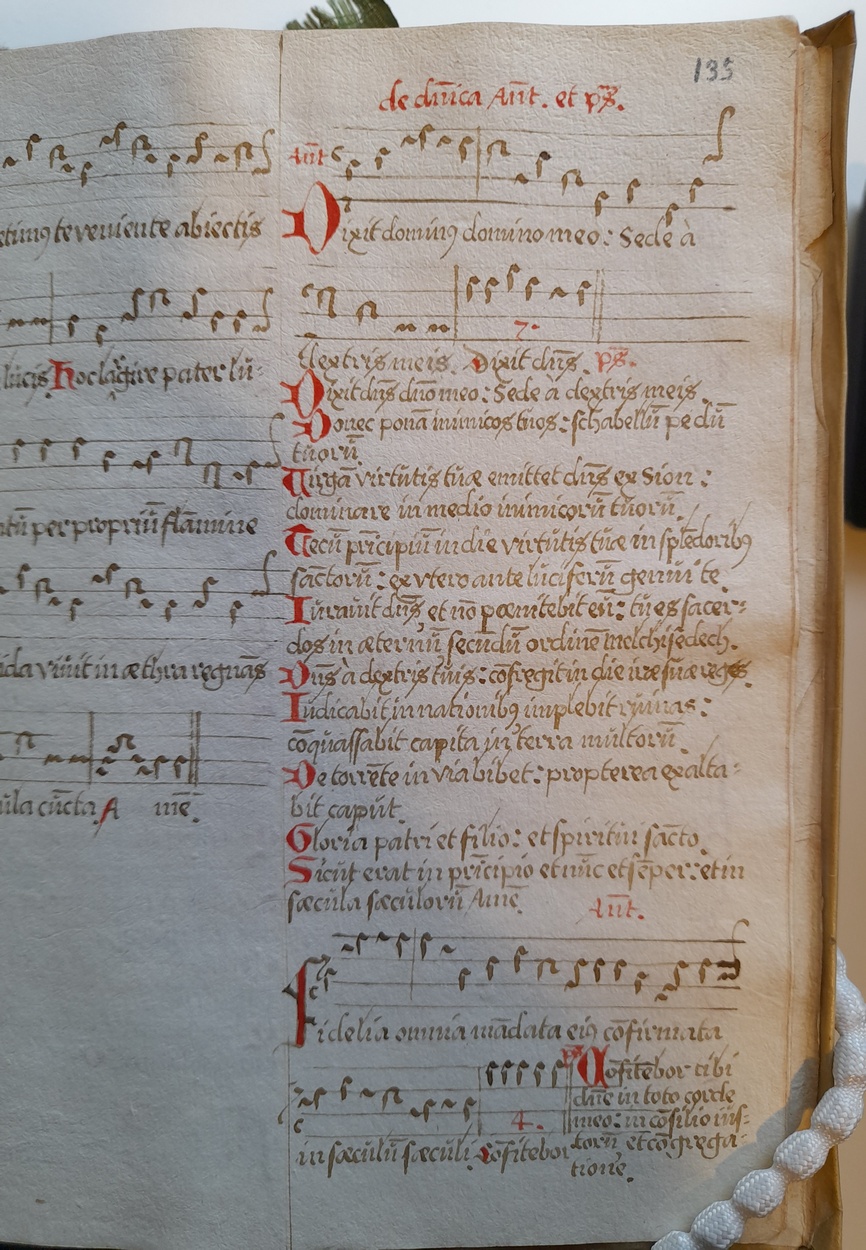 etimꝰ te veniente abiectis
lucis Hoc largire pater lu-
per propriū flāmine
vivit in æthra regnās
cūcta A mē.
135
de dn̄ica Ant̄. et ps̄.
Ant̄
Dixit dominꝰ domino meo: Sede à
dextris meis. Dixit dn̄s. ps̄.
7.
Dixit dn̄s dn̄o meo: Sede à dextris meis.
Donec ponā inimicos tuos: schabellū pedū
tuorū.
Virgā virtutis tuæ emittet dn̄s ex Sion:
dominare in medio inimicorū tuorū.
Tecū prīcipiū in die virtutis tuæ in splēdoribꝰ
sāctorū: ex vtero ante luciferū genui te.
Iuravit dn̄s, et nō pœnitebit eū: tu es sacer-
dos in æternū secūdū ordinē melchisedech.
Dn̄s à dextris tuis: cōfregit in die iræ suæ reges.
Iudicabit in nationibꝰ implebit ruinas:
cōquassabit capita in terra multorū.
De torrēte in via bibet: propterea exalta-
bit caput.
Gloria patri et filio: et spiritui sācto.
Sicut erat in prīcipio et nūc et sēper: et in
sæcula sæculorū Amē.
Ant̄.
Fidelia omnia mādata eiꝰ cōfirmata
in sæculū sæculi. cōfitebor
4.
ps̄ Cōfitebor tibi
dn̄e in toto corde
meo: in cōsilio ius-
torū et congrega-
tione.